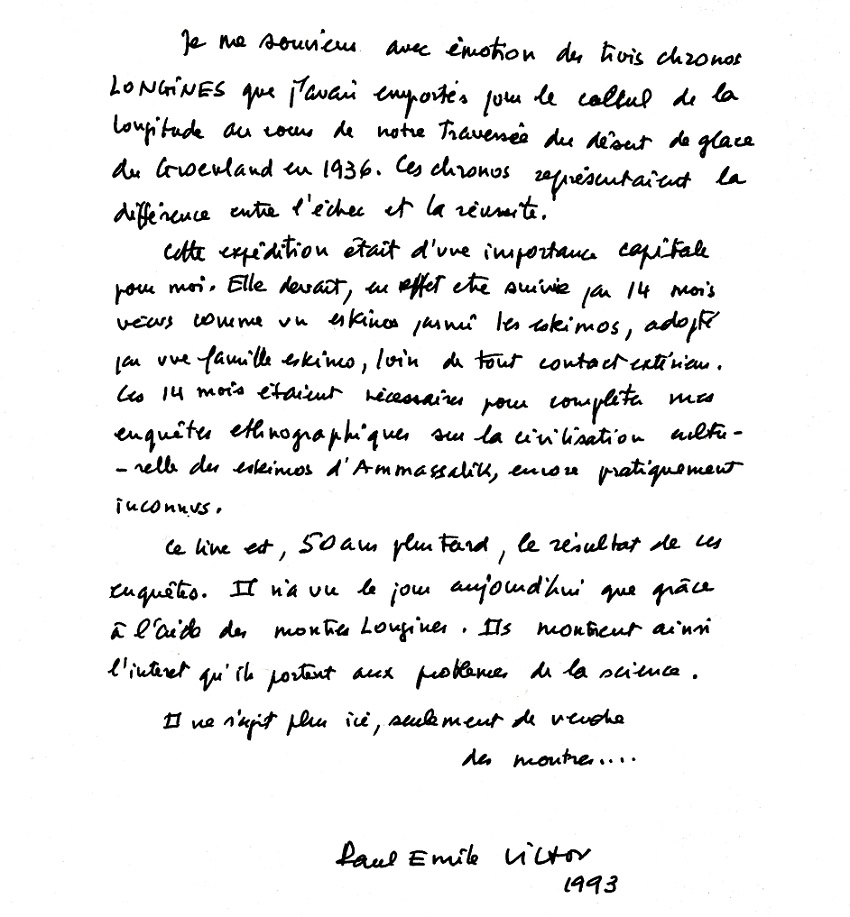 Je me souviens avec émotion des trois chronos
LONGINES que j'avais emportés pour le calcul de la
longitude au cours de notre traversée du désert de glace
du Groenland en 1936. Ces chronos représentaient la
différence entre l'échec et la réussite.
Cette expédition était d'une importance capitale
pour moi. Elle devait, en effet etre suivie par 14 mois
vécus comme un eskimo parmi les eskimos, adopté
par une famille eskimo, loin de tout contact extérieur.
Ces 14 mois étaient nécessaires pour compléter mes
enquêtes ethnographiques sur la civilisation cultu-
-relle des eskimos d'Ammassalik, encore pratiquement
inconnus.
Ce livre est, 50 ans plus tard, le résultat de ces
enquêtes. Il n'a vu le jour aujourd'hui que grâce
à l'aide des montres Longines. Ils montrent ainsi
l'interet qu'ils portent aux problèmes de la science.
Il ne s'agit plus ici, seulement de vendre
des montres....
Paul Emile Victor
1993